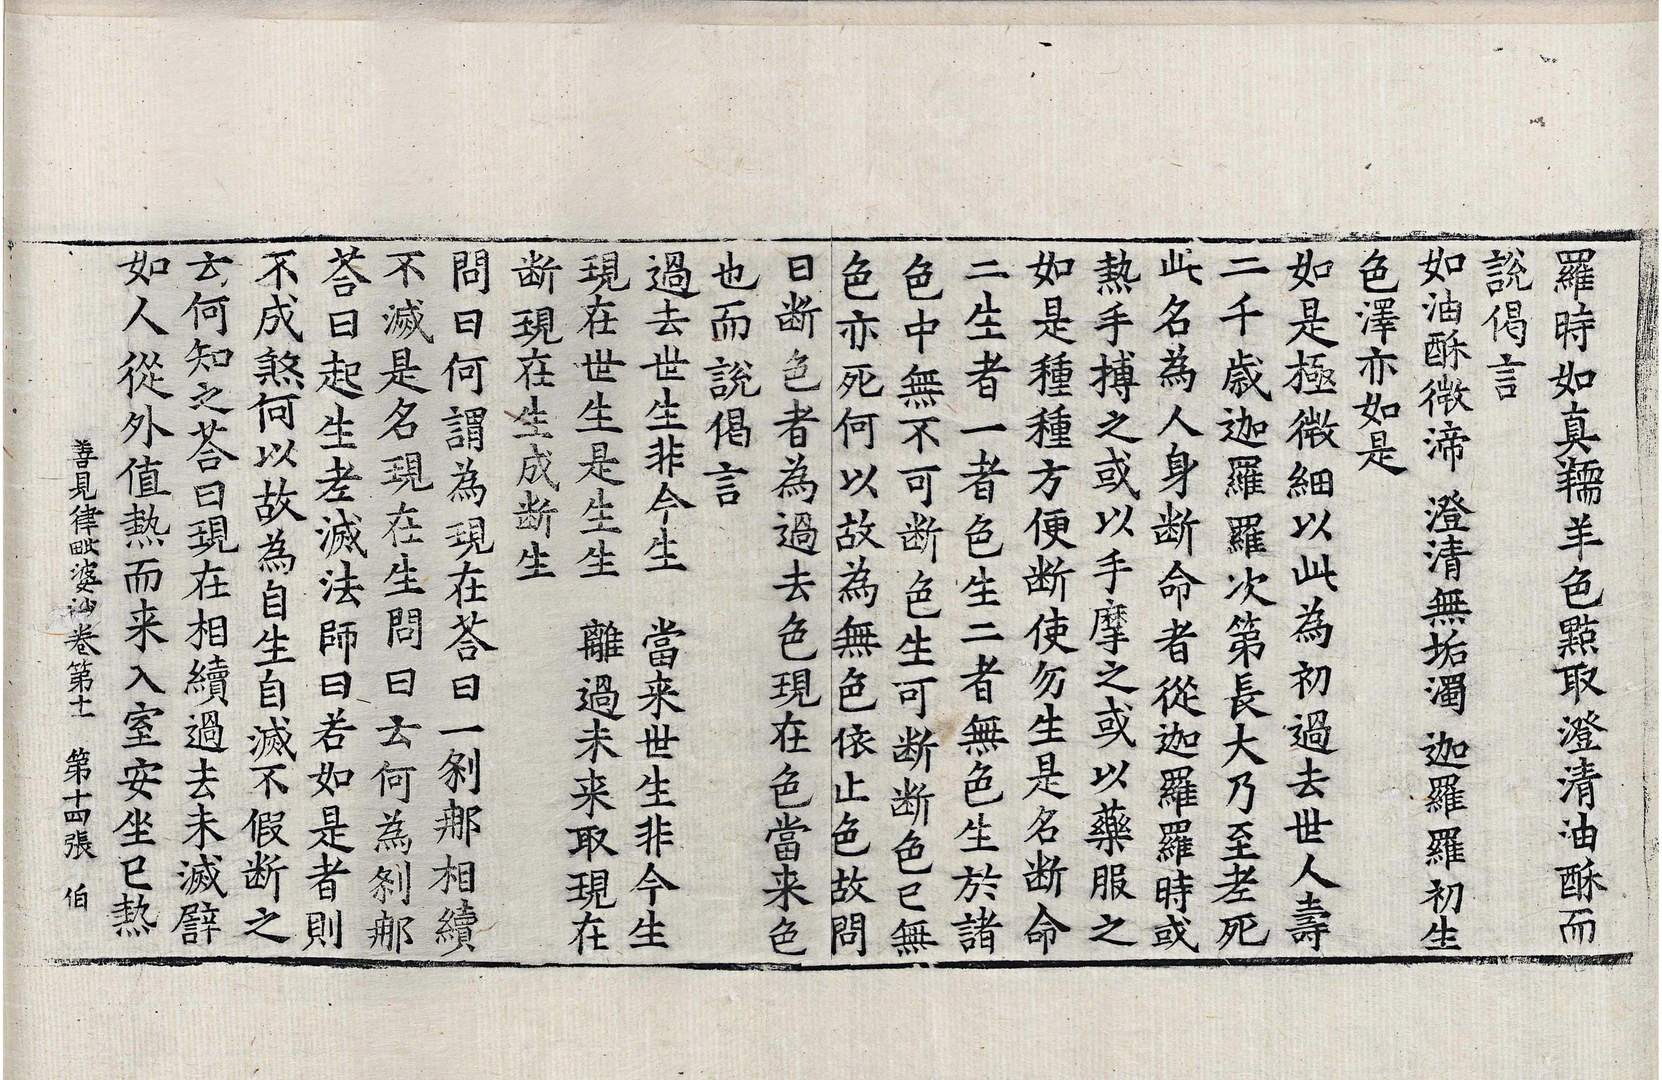 羅時如真羺羊色點取澄清油酥而
說偈言
如油酥微渧　澄清無垢濁　迦羅羅初生
色澤亦如是
如是極微細以此為初過去世人壽
二千歲迦羅羅次第長大乃至老死
此名為人身断命者從迦羅羅時或
熱手搏之或以手摩之或以藥服之
如是種種方便断使勿生是名断命
二生者一者色生二者無色生於諸
色中無不可断色生可断断色已無
色亦死何以故為無色依止色故問
曰断色者為過去色現在色當来色
也而說偈言
過去世生非今生　當来世生非今生
現在世生是生生　離過未来取現在
断現在生成断生
問曰何謂為現在荅曰一剎那相續
不滅是名現在生問曰云何為剎那
荅曰起生老滅法師曰若如是者則
不成煞何以故為自生自滅不假断之
云何知之荅曰現在相續過去未滅譬
如人從外值熱而来入室安坐已熱
善見律毗婆沙卷第十一　第十四張　伯